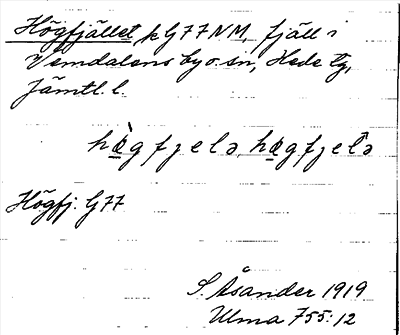 Högfjället k G77NM, fjäll i
Vemdalens by o. sn, Hede tg,
Jämtl. l.
hö̀gfjelə, høgfjelˆə
Högfj. G77
S. Åsander 1919
Ulma 755:12